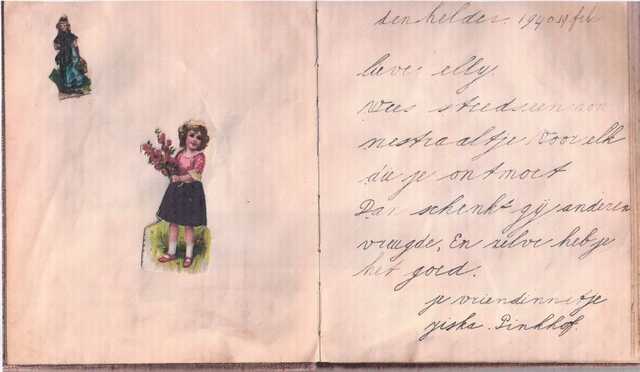 den helder. 1940 11 feb
lieve elly.
Wees steeds een zon
nestraaltje Voor elk
die je ontmoet
Dan schenkt gij anderen
vreugde, En zelve heb je
het goed.
je vriendinnetje
Jiska. Pinkhof.